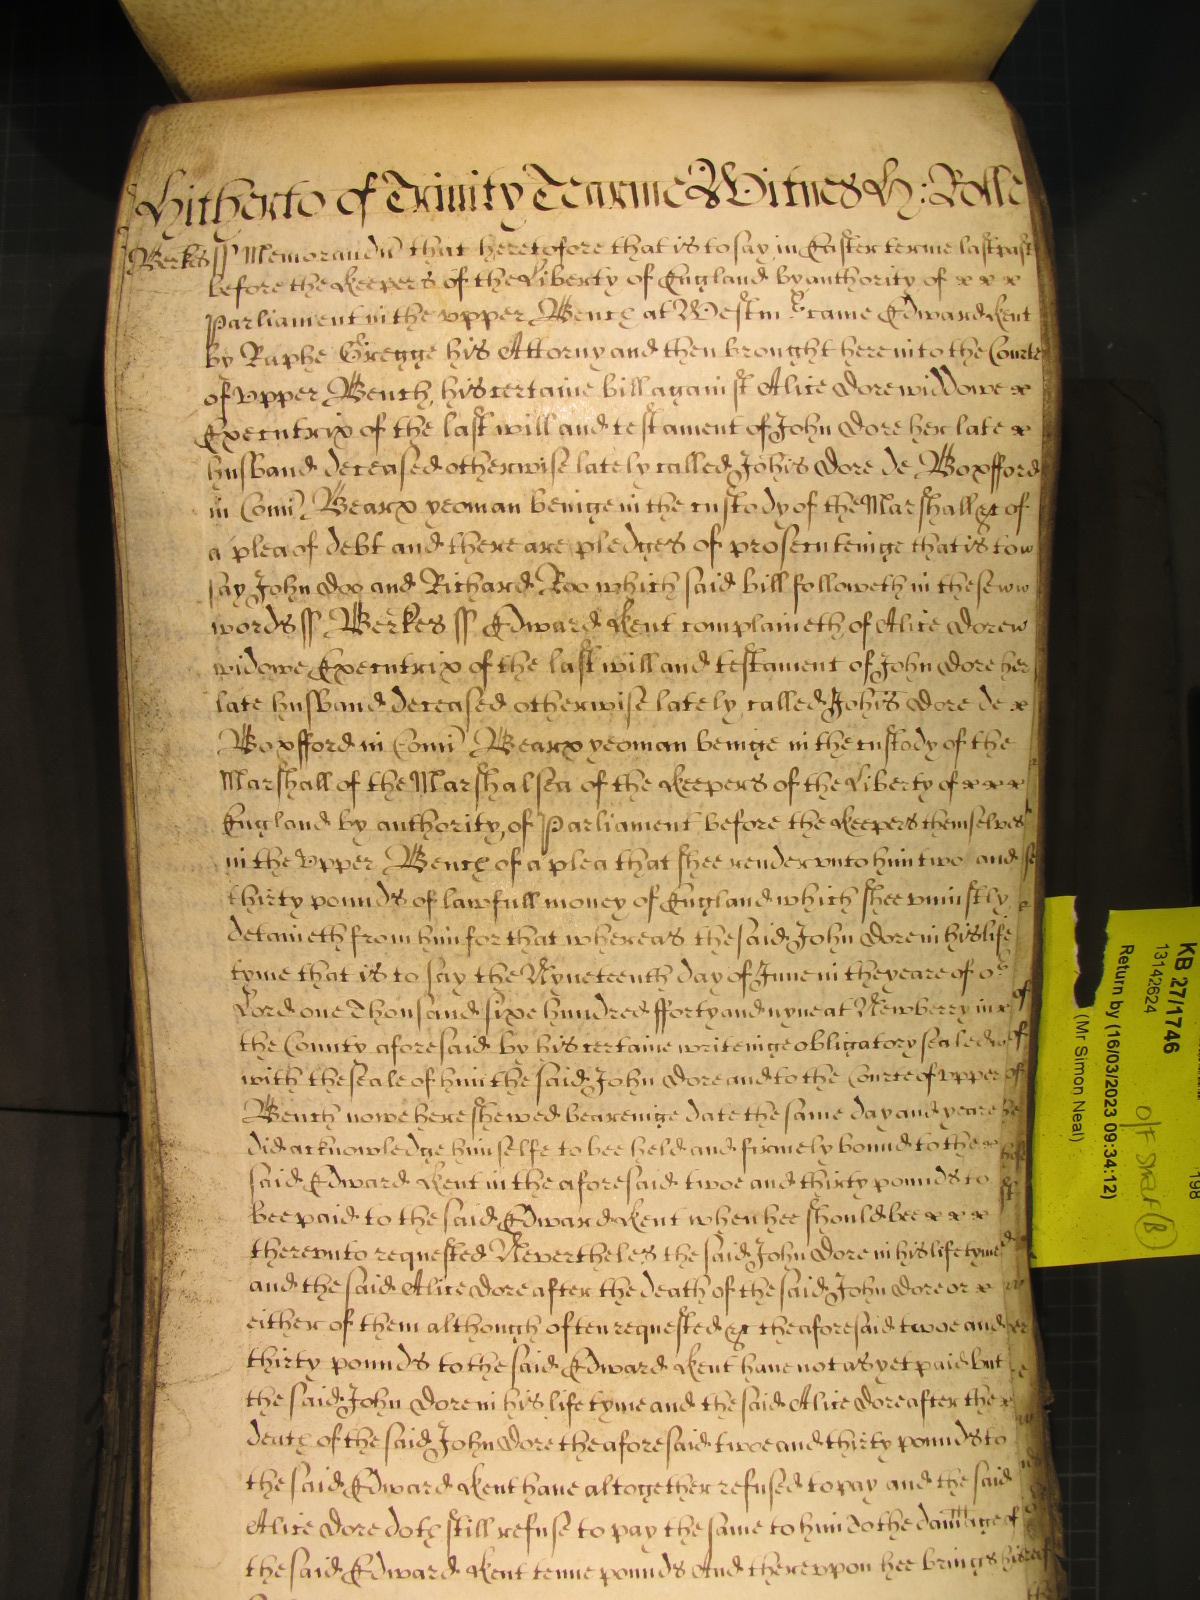 Hitherto of Trinity Tearme Witnes H: Rolle
Berks ss Memorandu that heretofore that is to say in Easter terme last past
before the Keepers of the Liberty of England by authority of x x x
Parliament in the upper Bench at Westm came Edward Kent
by Raphe Gregge his Attorny and then brought here into the Courte
of upper Bench his certaine bill against Alice Dore widdowe x
Executrix of the last will and testament of John Dore her late x
husband deceased otherwise lately called Johis Dore de Boxfford
in Com Bearx yeoman beinge in the custody of the Marshall &c of
a plea of debt and there are pledges of prosecuteinge that is to
say John Doo and Richard Roo which said bill followeth in these
words ss Berkes ss Edward Kent complaineth of Alice Dore
widowe Executrix of the last will and testament of John Dore her
late husband deceased otherwise lately called Johis Dore de x
Boxfford in Com Bearx yeoman beinge in the custody of the
Marshall of the Marshalsea of the Keepers of the Liberty of x x x
England by authority of Parliament before the Keepers themselves
in the upper Bench of a plea that shee render unto him two and
thirty pounds of lawfull money of England which shee uniustly
detaineth from him for that whereas the said John Dore in his life
tyme that is to say the Nyneteenth day of June in the yeare of or
Lord one Thousand sixe hundred fforty and nyne at Newberry in x
the County aforesaid by his certaine writeinge obligatory sealed
with the seale of him the said John Dore and to the Courte of upper
Bench nowe here shewed beareinge date the same day and yeare
did acknowledge himselfe to bee held and firmely bound to the x
said Edward Kent in the aforesaid twoe and thirty pounds to
bee paid to the said Edward Kent when hee should bee x x x
thereunto requested Nevertheles the said John Dore in his life tyme
and the said Alice Dore after the death of the said John Dore or x
either of them although often requested &c the aforesaid twoe and
thirty pounds to the said Edward Kent have not as yet paid but
the said John Dore in his life tyme and the said Alice Dore after the x
death of the said John Dore the aforesaid twoe and thirty pounds to
the said Edward Kent have altogether refused to pay and the said
Alice Dore doth still refuse to pay the same to him to the damage of
the said Edward Kent tenne pounds And thereupon hee brings his
KB 27/1746
13142624
Return by (16/03/2023 09:34:12)
(Mr Simon Neal)